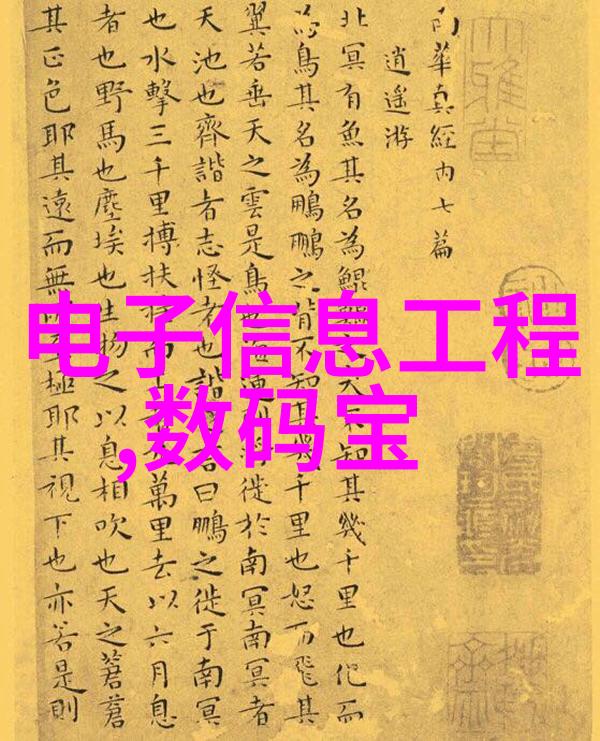 电子信息工程
,数码宝
南華真經内七篇
逍遥游
北冥有魚其名為鯤鯤之大不知其幾千里也化而
為鳥其名為鵬鵬之背不知其幾千里也怒而飛其
翼若垂天之雲是鳥也海運則將徙於南冥南冥者
天池也齊諧者志怪者也諧之言曰鵬之徙于南冥
也水擊三千里搏扶摇而上者九萬里去以六月息
者也野馬也塵埃也生物之以息相吹也天之蒼蒼
其正色耶其遠而無所至極耶其視下也亦若是則
大雅堂